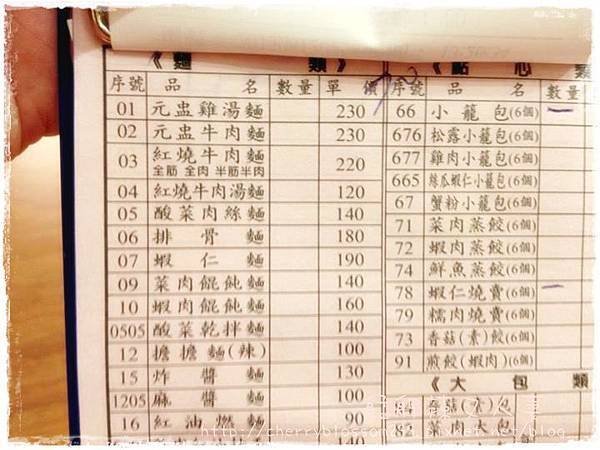 《麵 類》
序號 品 名 數量 單 價
01 元盅雞湯麵 230
02 元盅牛肉麵 230
03 紅燒牛肉麵 220
全筋 全肉 半筋半肉
04 紅燒牛肉湯麵 120
05 酸菜肉絲麵 140
06 排骨麵 180
07 蝦仁麵 190
09 菜肉餛飩麵 140
10 蝦肉餛飩麵 160
0505 酸菜乾拌麵 140
12 擔擔麵(辣) 100
15 炸醬麵 130
1205 麻醬麵 100
16 紅油燃麵 90
100
《點 心 類
序號 品 名 數量
66 小籠包(6個)
676 松露小籠包(6個)
677 雞肉小籠包(6個)
665 絲瓜蝦仁小籠包(6個)
67 蟹粉小籠包(6個)
71 菜肉蒸餃(6個)
72 蝦肉蒸餃(6個)
74 鮮魚蒸餃(6個)
78 蝦仁燒賣(6個)
79 糯肉燒賣(6個)
73 香菇(素)餃(6個)
91 煎餃(蝦肉)(6個)
《大 包 類
82 菜肉大包